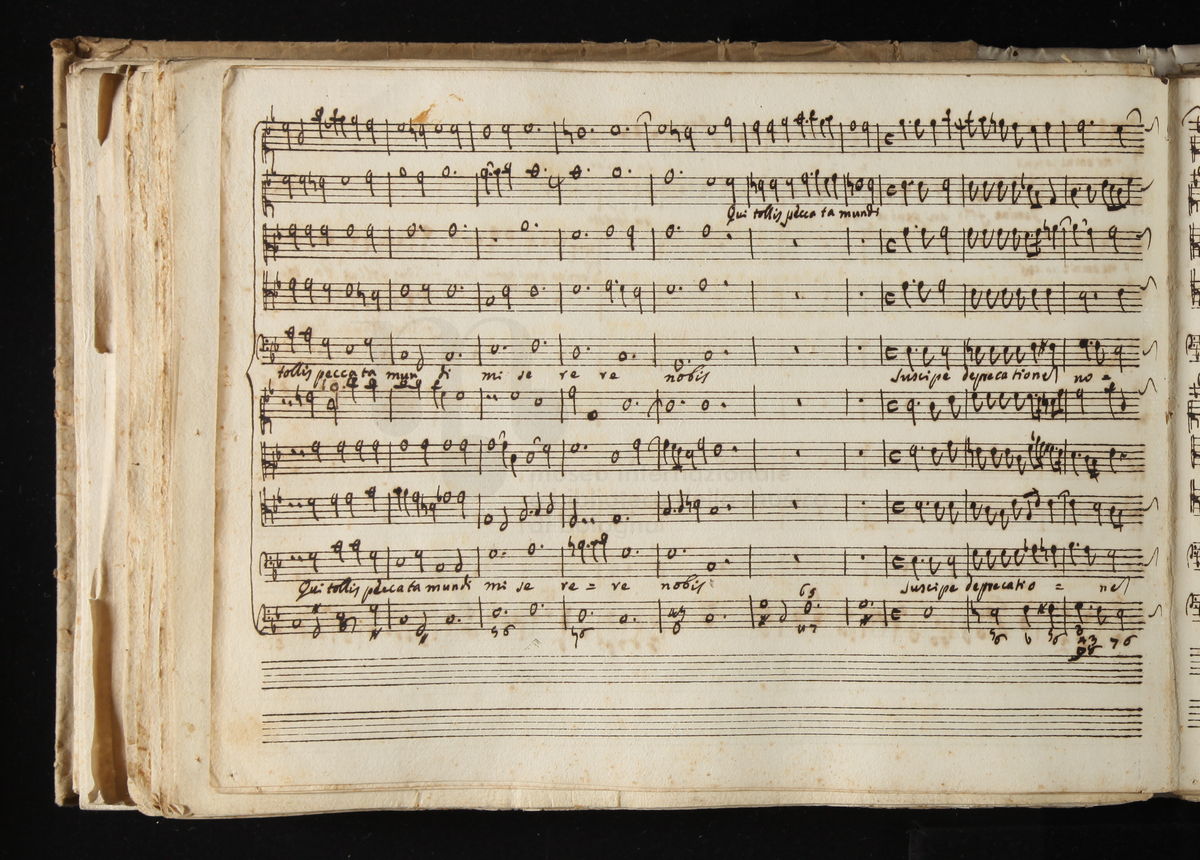 Qui tollis pecca ta mundi
tollis pecca ta mun di mi se re re nobis Suscipe deprecationem no =
museo internazionale
Qui tollis peccata mundi mi se re = re nobis Suscipe deprecatio = nem
6 5